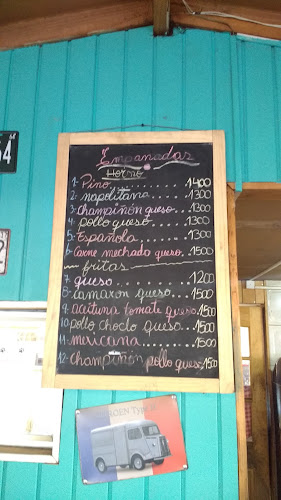 54
Empanadas
Horno
1- Pino......... 1400
2- napolitana... 1300
3- champiñón queso.. 1300
4- pollo queso... 1300
5- Española...... 1300
6- Carne mechada queso. 1500
fritas
7- queso......... 1200
8- camaron queso... 1500
9- aceituna tomate queso 1500
10- pollo choclo queso.. 1500
11- mexicana...... 1500
12- champiñón pollo queso 1500
CITROEN Type H